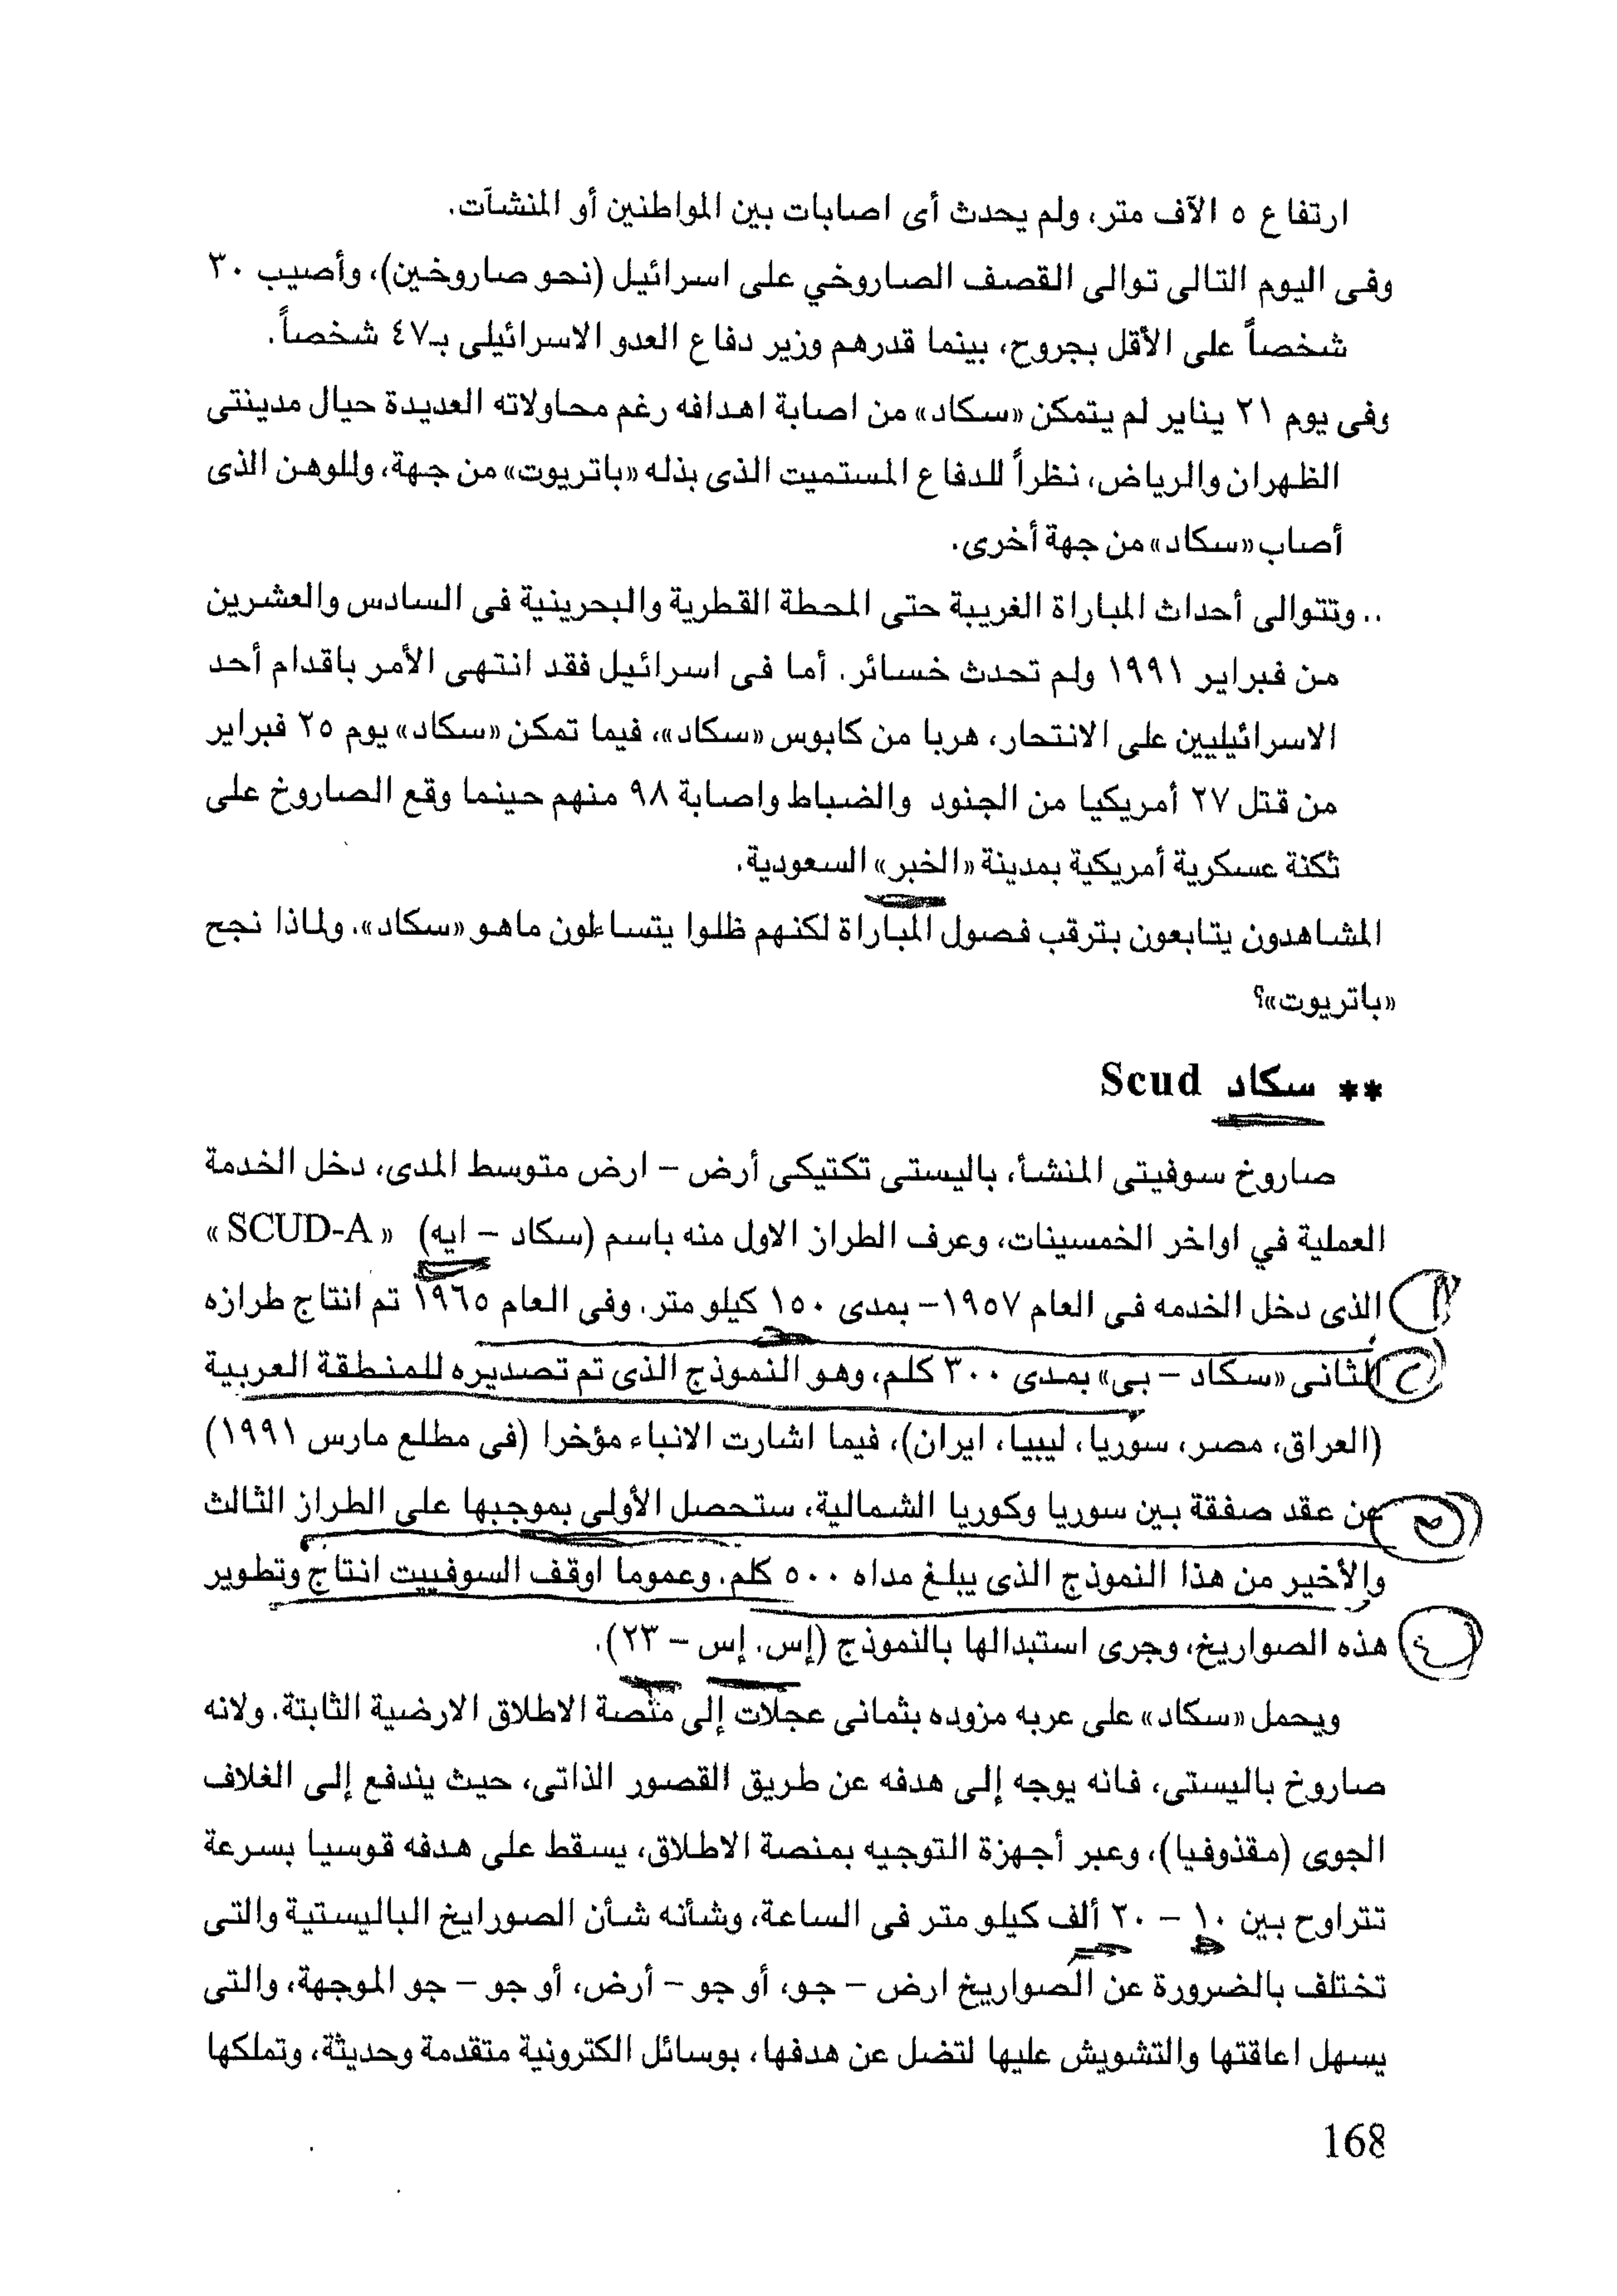 ارتفاع ٥ الآف متر، ولم يحدث أى اصابات بين المواطنين أو المنشآت.
وفى اليوم التالى توالى القصف الصاروخي على اسرائيل (نحو صاروخين)، وأصيب ٣٠
شخصاً على الأقل بجروح، بينما قدرهم وزير دفاع العدو الاسرائيلى بـ٤٧ شخصاً.
وفى يوم ٢١ يناير لم يتمكن «سكاد» من اصابة اهدافه رغم محاولاته العديدة حيال مدينتى
الظهران والرياض، نظراً للدفاع المستميت الذى بذله «باتريوت» من جهة، وللوهن الذى
أصاب «سكاد» من جهة أخرى.
.. وتتوالى أحداث المباراة الغريبة حتى المحطة القطرية والبحرينية فى السادس والعشرين
من فبراير ١٩٩١ ولم تحدث خسائر. أما فى اسرائيل فقد انتهى الأمر باقدام أحد
الاسرائيليين على الانتحار، هربا من كابوس «سكاد»، فيما تمكن «سكاد» يوم ٢٥ فبراير
من قتل ٢٧ أمريكيا من الجنود والضباط واصابة ٩٨ منهم حينما وقع الصاروخ على
ثكنة عسكرية أمريكية بمدينة «الخبر» السعودية.
المشاهدون يتابعون بترقب فصول المباراة لكنهم ظلوا يتساءلون ماهو «سكاد». ولماذا نجح
«باتريوت»؟
** سكاد Scud
صاروخ سوفيتى المنشأ، باليستى تكتيكى أرض – ارض متوسط المدى، دخل الخدمة
العملية في اواخر الخمسينات، وعرف الطراز الاول منه باسم (سكاد – ايه) «SCUD-A»
١ الذى دخل الخدمه فى العام ١٩٥٧– بمدى ١٥٠ كيلو متر. وفى العام ١٩٦٥ تم انتاج طرازه
٢ الثانى «سكاد – بى» بمدى ٣٠٠ كلم، وهو النموذج الذى تم تصديره للمنطقة العربية
(العراق، مصر، سوريا، ليبيا، ايران)، فيما اشارت الانباء مؤخرا (فى مطلع مارس ١٩٩١)
عن عقد صفقة بين سوريا وكوريا الشمالية، ستحصل الأولى بموجبها على الطراز الثالث
والأخير من هذا النموذج الذى يبلغ مداه ٥٠٠ كلم. وعموما اوقف السوفييت انتاج وتطوير
٤ هذه الصواريخ، وجرى استبدالها بالنموذج (إس. إس – ٢٣).
ويحمل «سكاد» على عربه مزوده بثمانى عجلات إلى منصة الاطلاق الارضية الثابتة. ولانه
صاروخ باليستى، فانه يوجه إلى هدفه عن طريق القصور الذاتى، حيث يندفع إلى الغلاف
الجوى (مقذوفيا)، وعبر أجهزة التوجيه بمنصة الاطلاق، يسقط على هدفه قوسيا بسرعة
تتراوح بين ١٠ – ٢٠ ألف كيلو متر فى الساعة، وشأنه شأن الصورايخ الباليستية والتى
تختلف بالضرورة عن الصواريخ ارض – جو، أو جو – أرض، أو جو – جو الموجهة، والتى
يسهل اعاقتها والتشويش عليها لتضل عن هدفها، بوسائل الكترونية متقدمة وحديثة، وتملكها
168